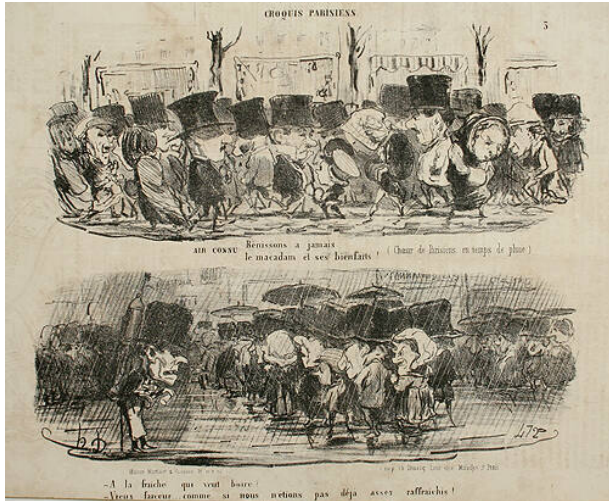 CROQUIS PARISIENS
3
AIR CONNU Bénissons a jamais
le macadam et ses bienfaits ! ( Chœur de Parisiens en temps de pluie )
h.D.
Maison Martinet
-A la fraîche qui veut boire !
-Vieux farceur comme si nous n'etions pas déja assez raffraichis !